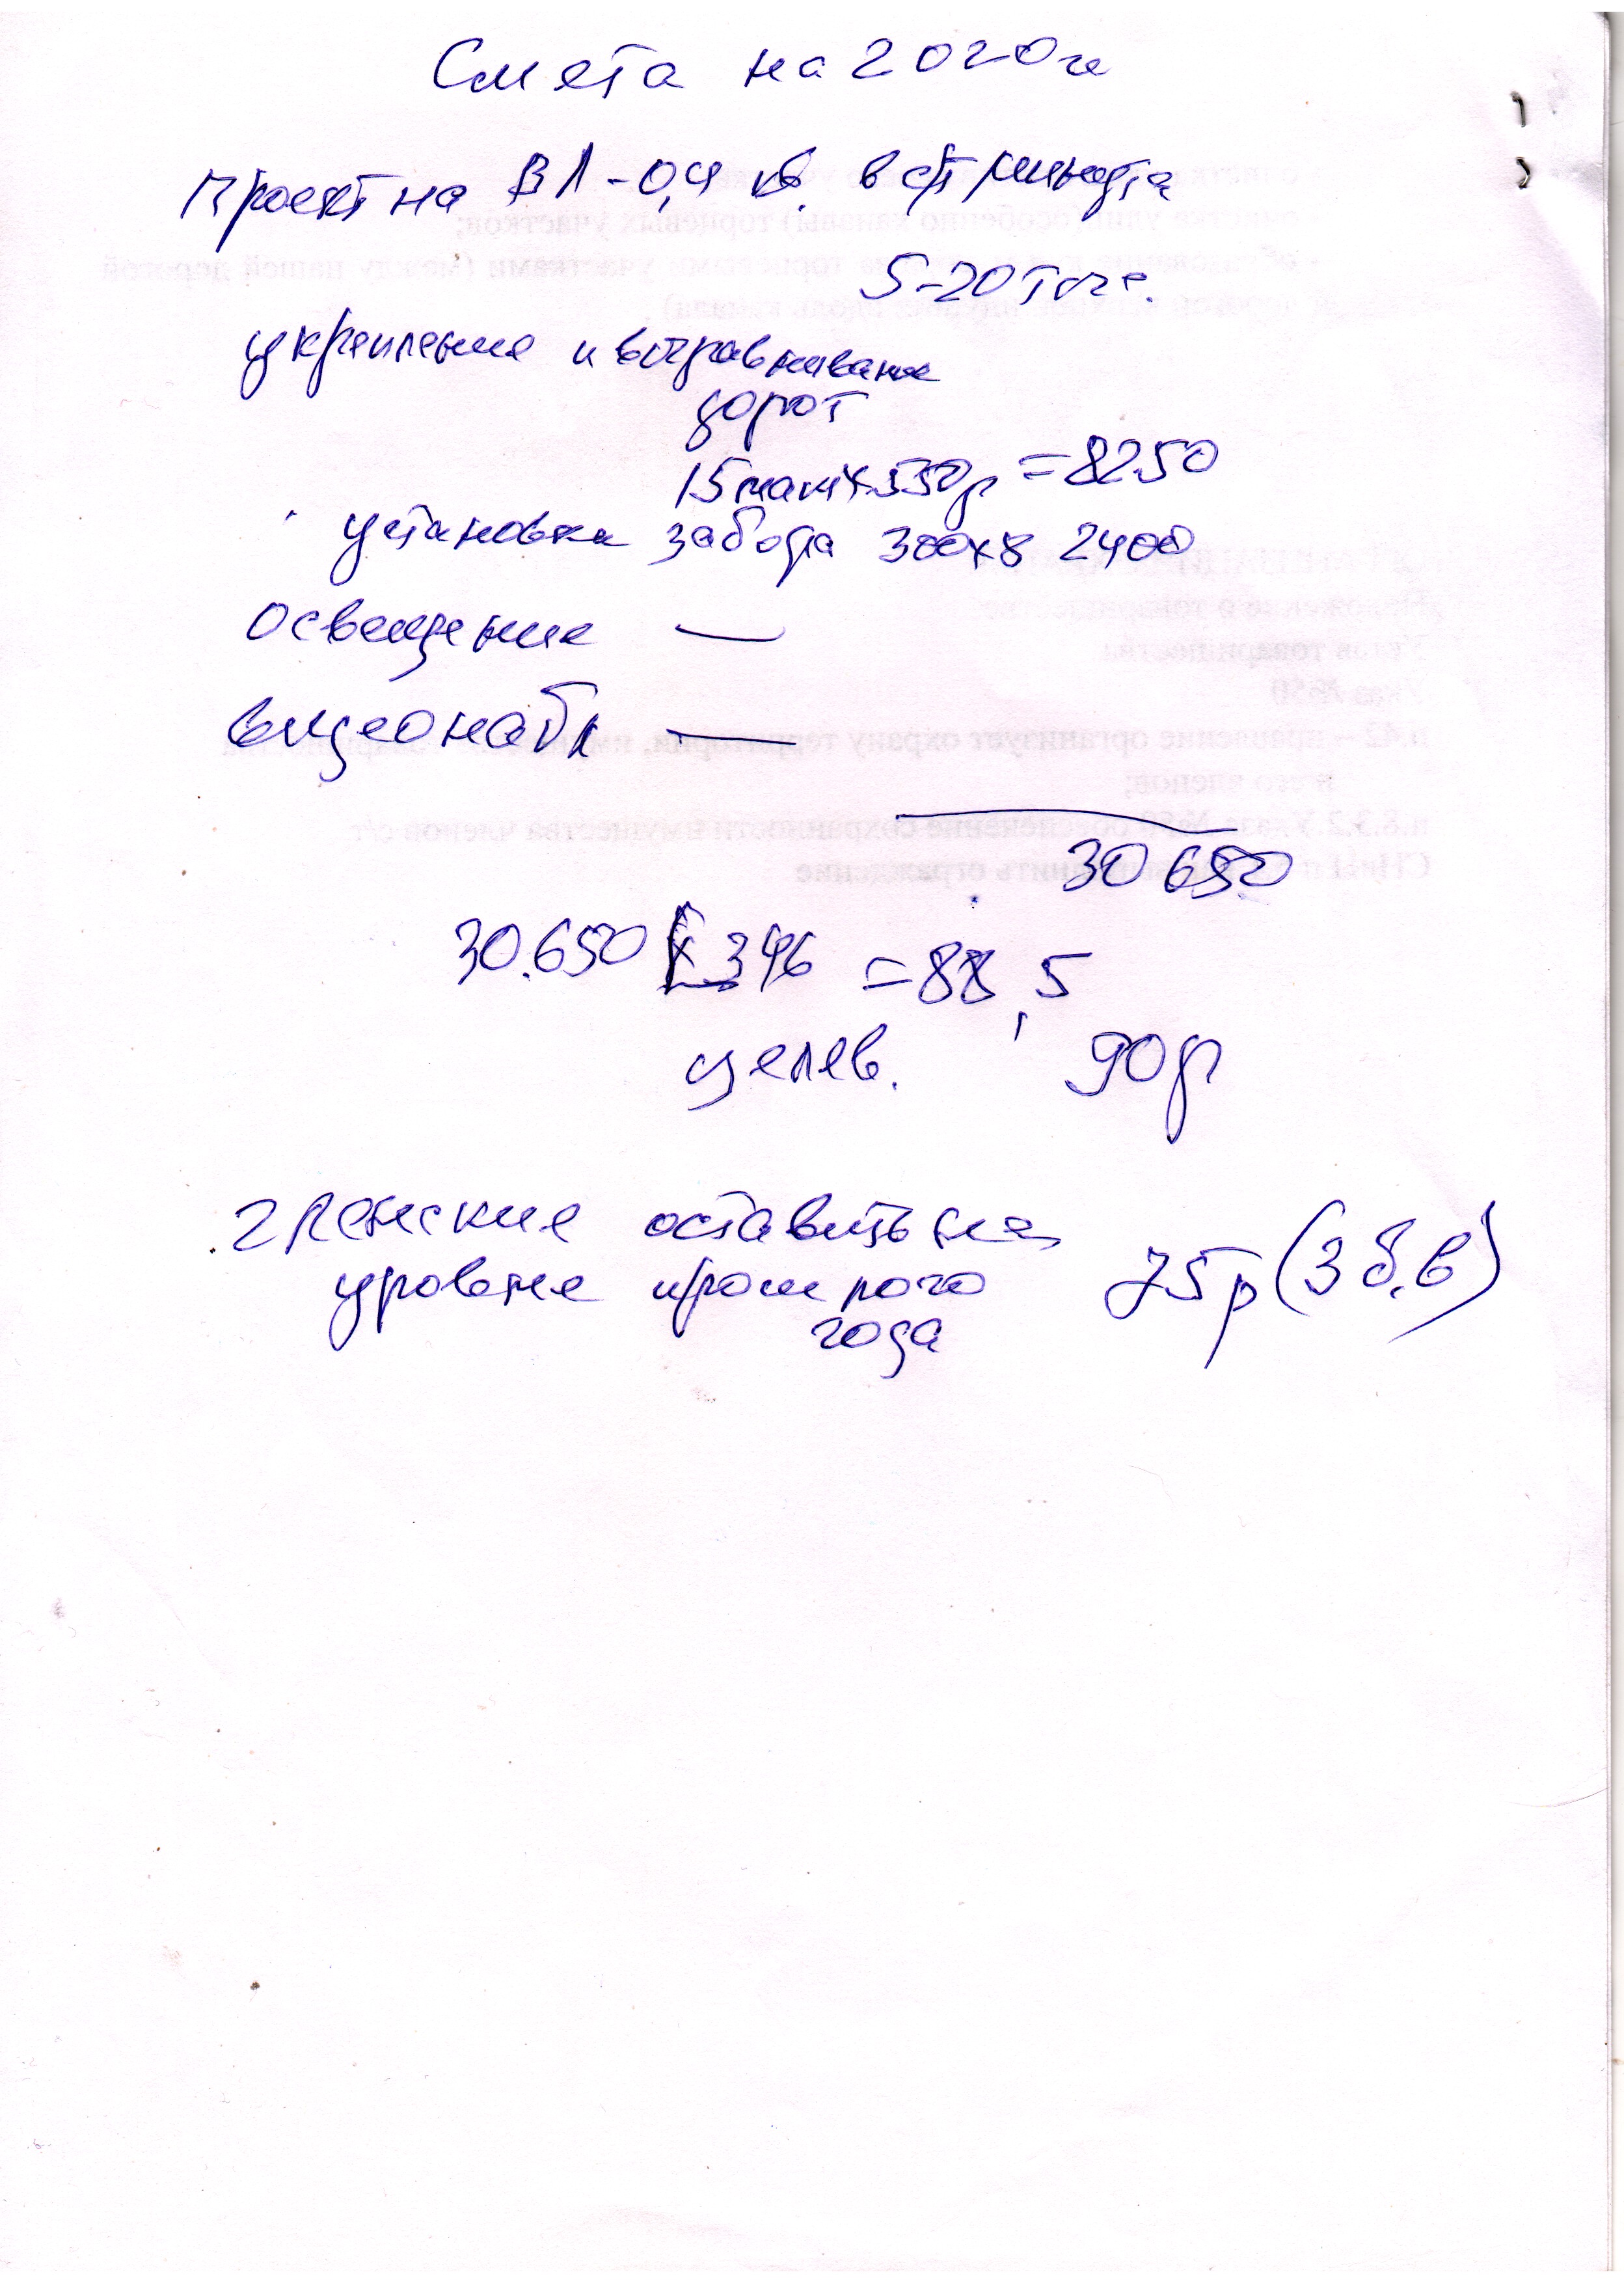 Смета на 2020 г
Проект на ВЛ-0,4 кв. в ст
5-20 тыс.
укрепление и выравнивание
дорог
15 маш х 550р = 8250
установка забора 300х8 2400
Освещение —
видеонабл —
30 650
30.650 : 346 = 88,5
целев. 90р
Членские оставить на
уровне прошлого 75р (3 б.в)
года